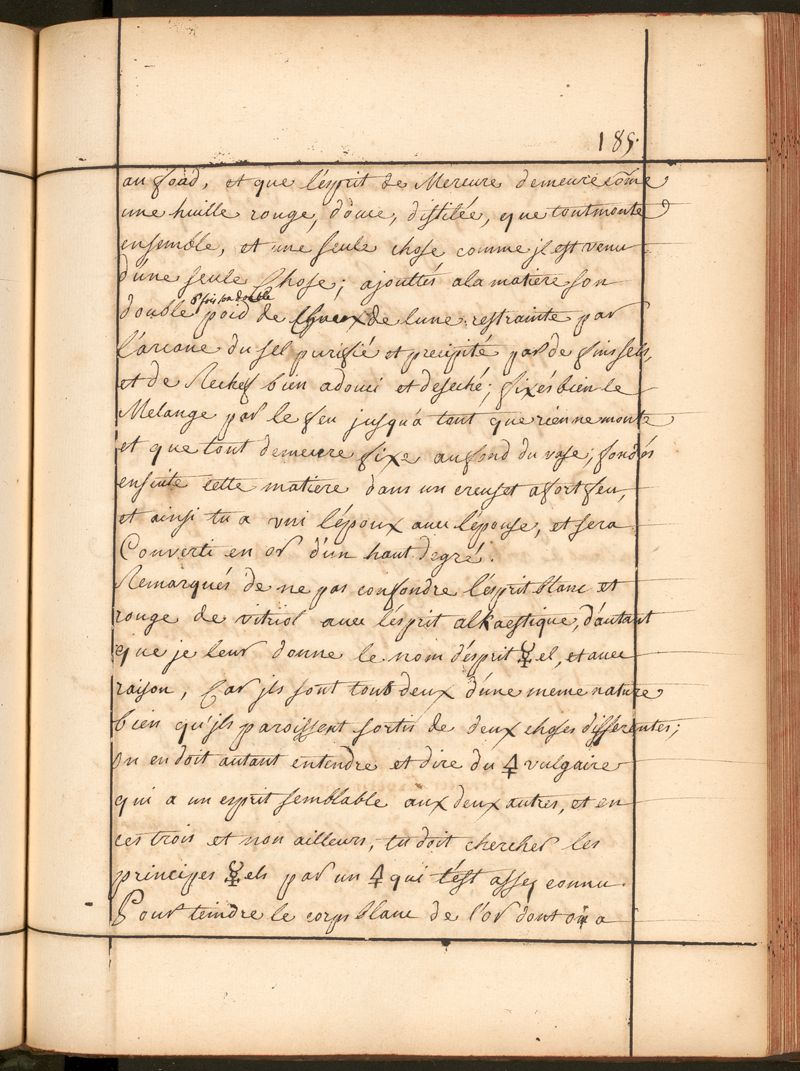 185.
au fond, et que l'esprit de Mercure demeure cõme
une huille rouge, douce, distilée, que tout monte
ensemble, et une seule chose comme jl est venu
d'une seule Chose; ajouttés a la matiere son
double poid de Chaux de lune restrainte par
l'arcane du sel purifié et precipité par de fins sels,
et de Rechef bien adouci et deseché; fixés bien le
Melange par le feu jusqu'a tant que rien ne monte
et que tout demeure fixe au fond du vase; fondés
ensuite cette matiere dans un creuset a fort feu,
et ainsi tu a uni l'époux avec l'épouse, et sera
Converti en or d'un haut degré.
Remarqués de ne pas confondre l'esprit blanc et
rouge de vitriol avec l'esprit alkaestique, d'autant
que je leur donne le nom d'esprit ☿el, et avec
raison, Car jls sont tous deux d'une meme nature
bien qu'jls paroissent sortir de deux choses differentes;
on en doit autant entendre et dire du 🜍 vulgaire
qui a un esprit semblable aux deux autres, et en
ces trois et non ailleurs, tu doit chercher les
principes ☿els par un 🜍 qui t'est assez connu.
Pour teindre le corps blanc de l'or dont on a